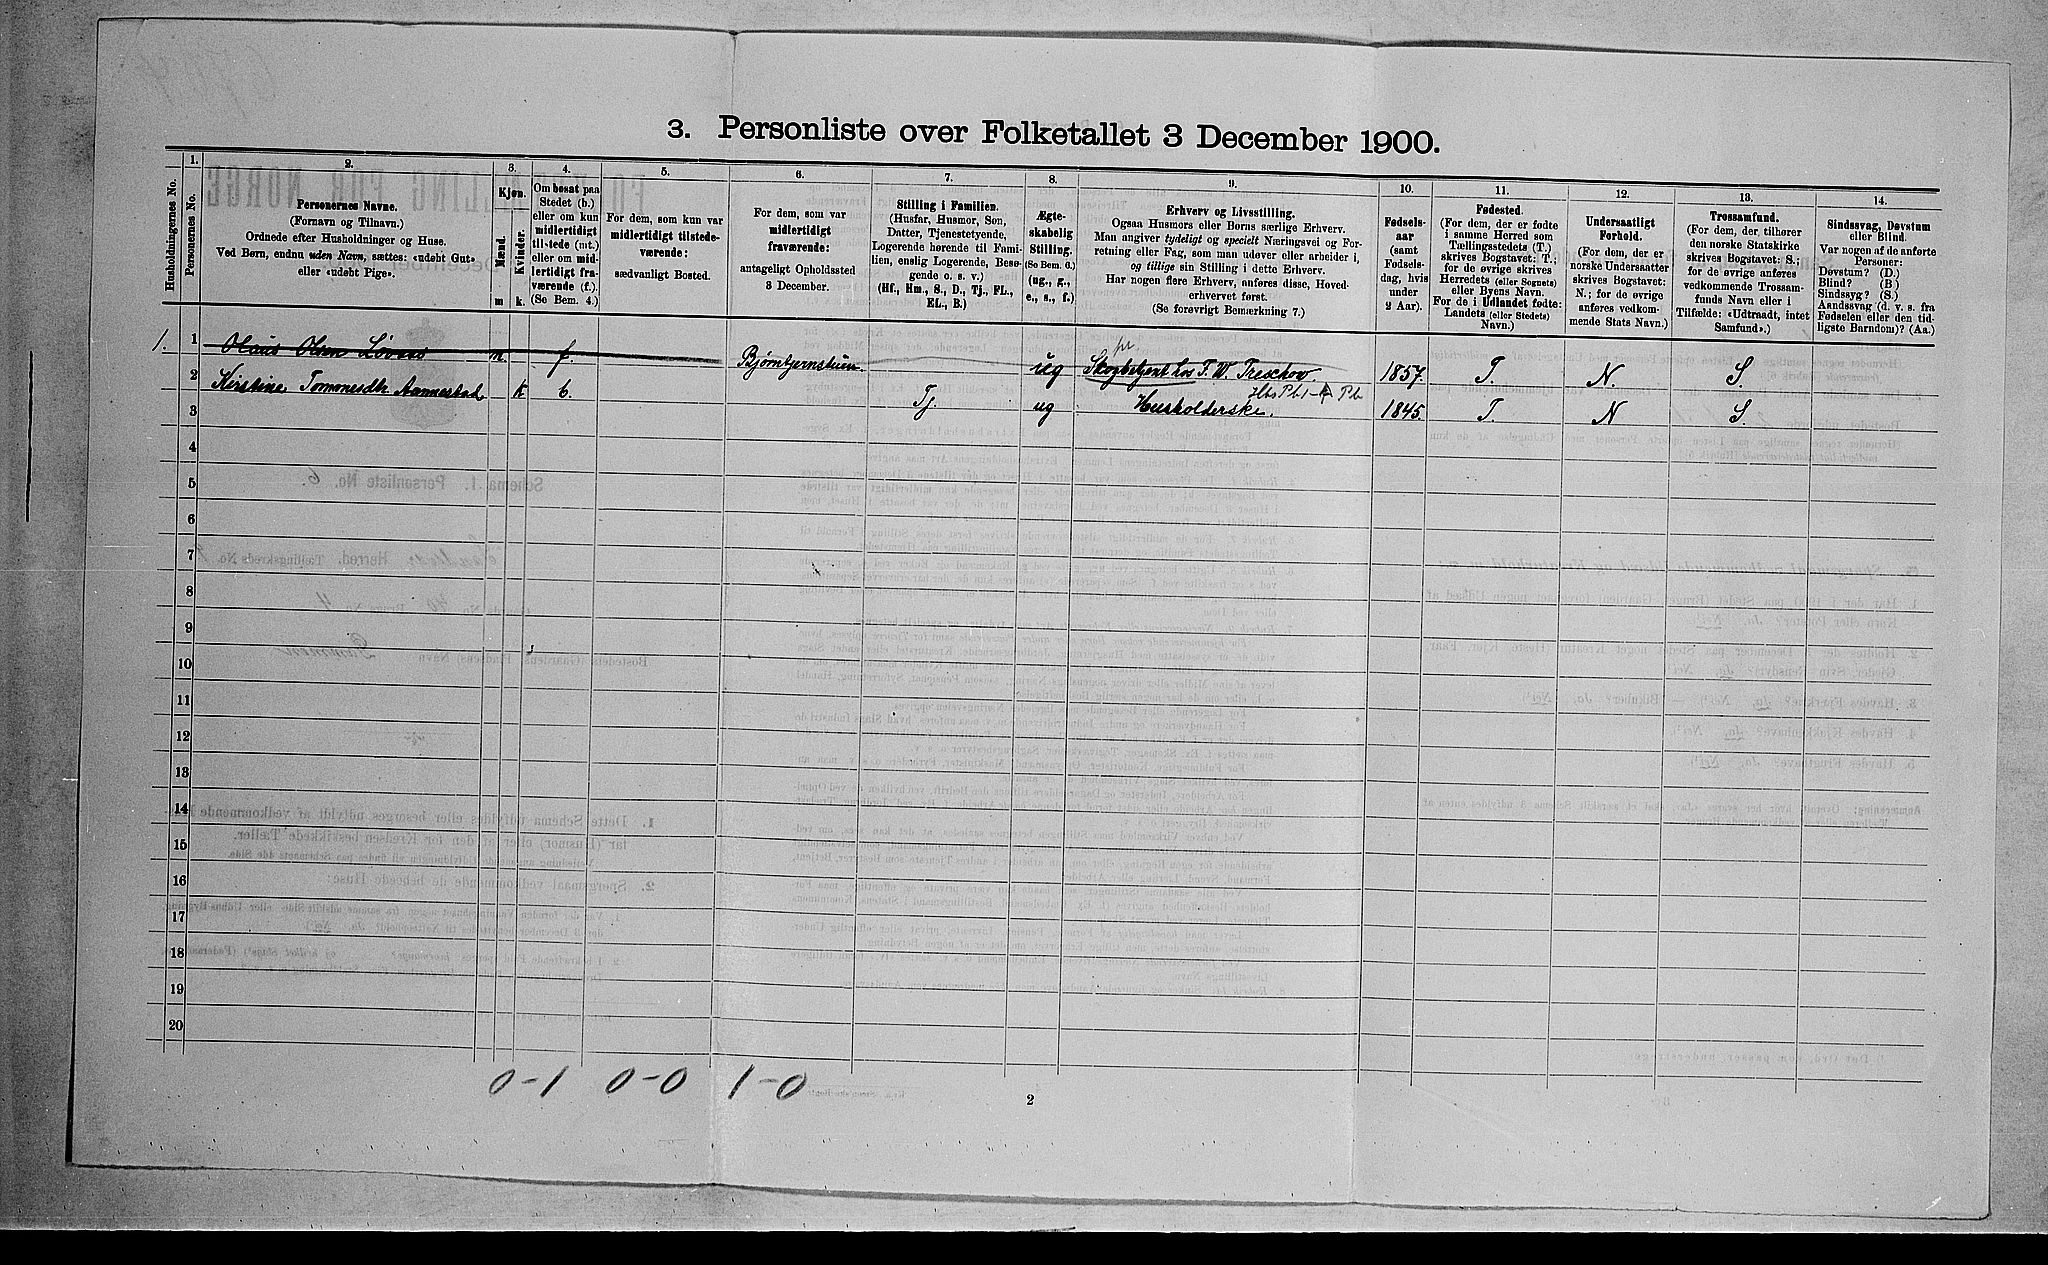 3. Personliste over Folketallet 3 December 1900.
Husholdningernes No.
1.
Personernes No.
2.
Personernes Navne.
(Fornavn og Tilnavn.)
Ordnede efter Husholdninger og Huse.
Ved Børn, endnu uden Navn, sættes: «udøbt Gut»
eller «udøbt Pige».
3.
Kjøn.
Mænd.
Kvinder.
m
k.
4.
Om bosat paa
Stedet (b.)
eller om kun
midlertidigt
tilstede (mt.)
eller om mid-
lertidigt fra-
værende (f.).
(Se Bem. 4.)
5.
For dem, som kun var
midlertidigt tilstede-
værende:
sædvanligt Bosted.
6.
For dem, som var
midlertidigt
fraværende:
antageligt Opholdssted
3 December.
7.
Stilling i Familien.
(Husfar, Husmor, Søn,
Datter, Tjenestetyende,
Logerende hørende til Fami-
lien, enslig Logerende, Besø-
gende o. s. v.)
(Hf., Hm., S., D., Tj., FL.,
EL., B.)
8.
Ægte-
skabelig
Stilling.
(Se Bem. 6.)
(ug., g.,
e., s., f.)
9.
Erhverv og Livsstilling.
Ogsaa Husmors eller Børns særlige Erhverv.
Man angiver tydeligt og specielt Næringsvei og For-
retning eller Fag, som man udøver eller arbeider i,
og tillige sin Stilling i dette Erhverv.
Har nogen flere Erhverv, anføres disse, Hoved-
erhvervet først.
(Se forøvrigt Bemærkning 7.)
10.
Fødsels-
aar
(samt
Fødsels-
dag, hvis
under
2 Aar).
11.
Fødested.
(For dem, der er fødte
i samme Herred som
Tællingsstedets (T.)
skrives Bogstavet: T.;
for de øvrige skrives
Herredets (eller Sognets)
eller Byens Navn.
For de i Udlandet fødte:
Landets (eller Stedets)
Navn.)
12.
Undersaatligt
Forhold.
(For dem, der er
norske Undersaatter
skrives Bogstavet:
N.; for de øvrige
anføres vedkom-
mende Stats Navn.)
13.
Trossamfund.
(For dem, der tilhører
den norske Statskirke
skrives Bogstavet: S.;
for de øvrige anføres
vedkommende Trossam-
funds Navn eller i
Tilfælde: «Udtraadt, intet
Samfund».)
14.
Sindssvag, Døvstum
eller Blind.
Var nogen af de anførte
Personer:
Døvstum? (D.)
Blind? (B)
Sindssyg? (S.)
Aandssvag (d. v. s. fra
Fødselen eller den tid-
ligste Barndom)? (Aa.)
1. 1 Olaus Olsen Løvaas m. f. Bjørntjernstuen ug Skogbetjent hos F. W. Treschow. 1857. T. N. S.
2 Kirstine Tomonesdtr. Aamnestad k b. Tj. ug Husholderske. 1845. T. N S.
3
4
5
6
7
8
9
10
11
12
13
14
15
16
17
18
19
20
0-1 0-0 1-0
2